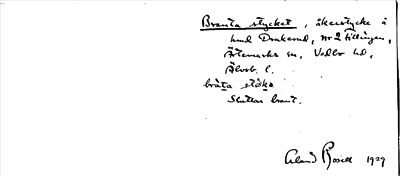 Branta stycket, åkerstycke å
hmd Drakerud, nr 2 Fillingen,
Ärtemarks sn, Vedbo hd,
Älvsb. l.
bràta stỏka
Sluttar brant.
Erland Rosell 1929